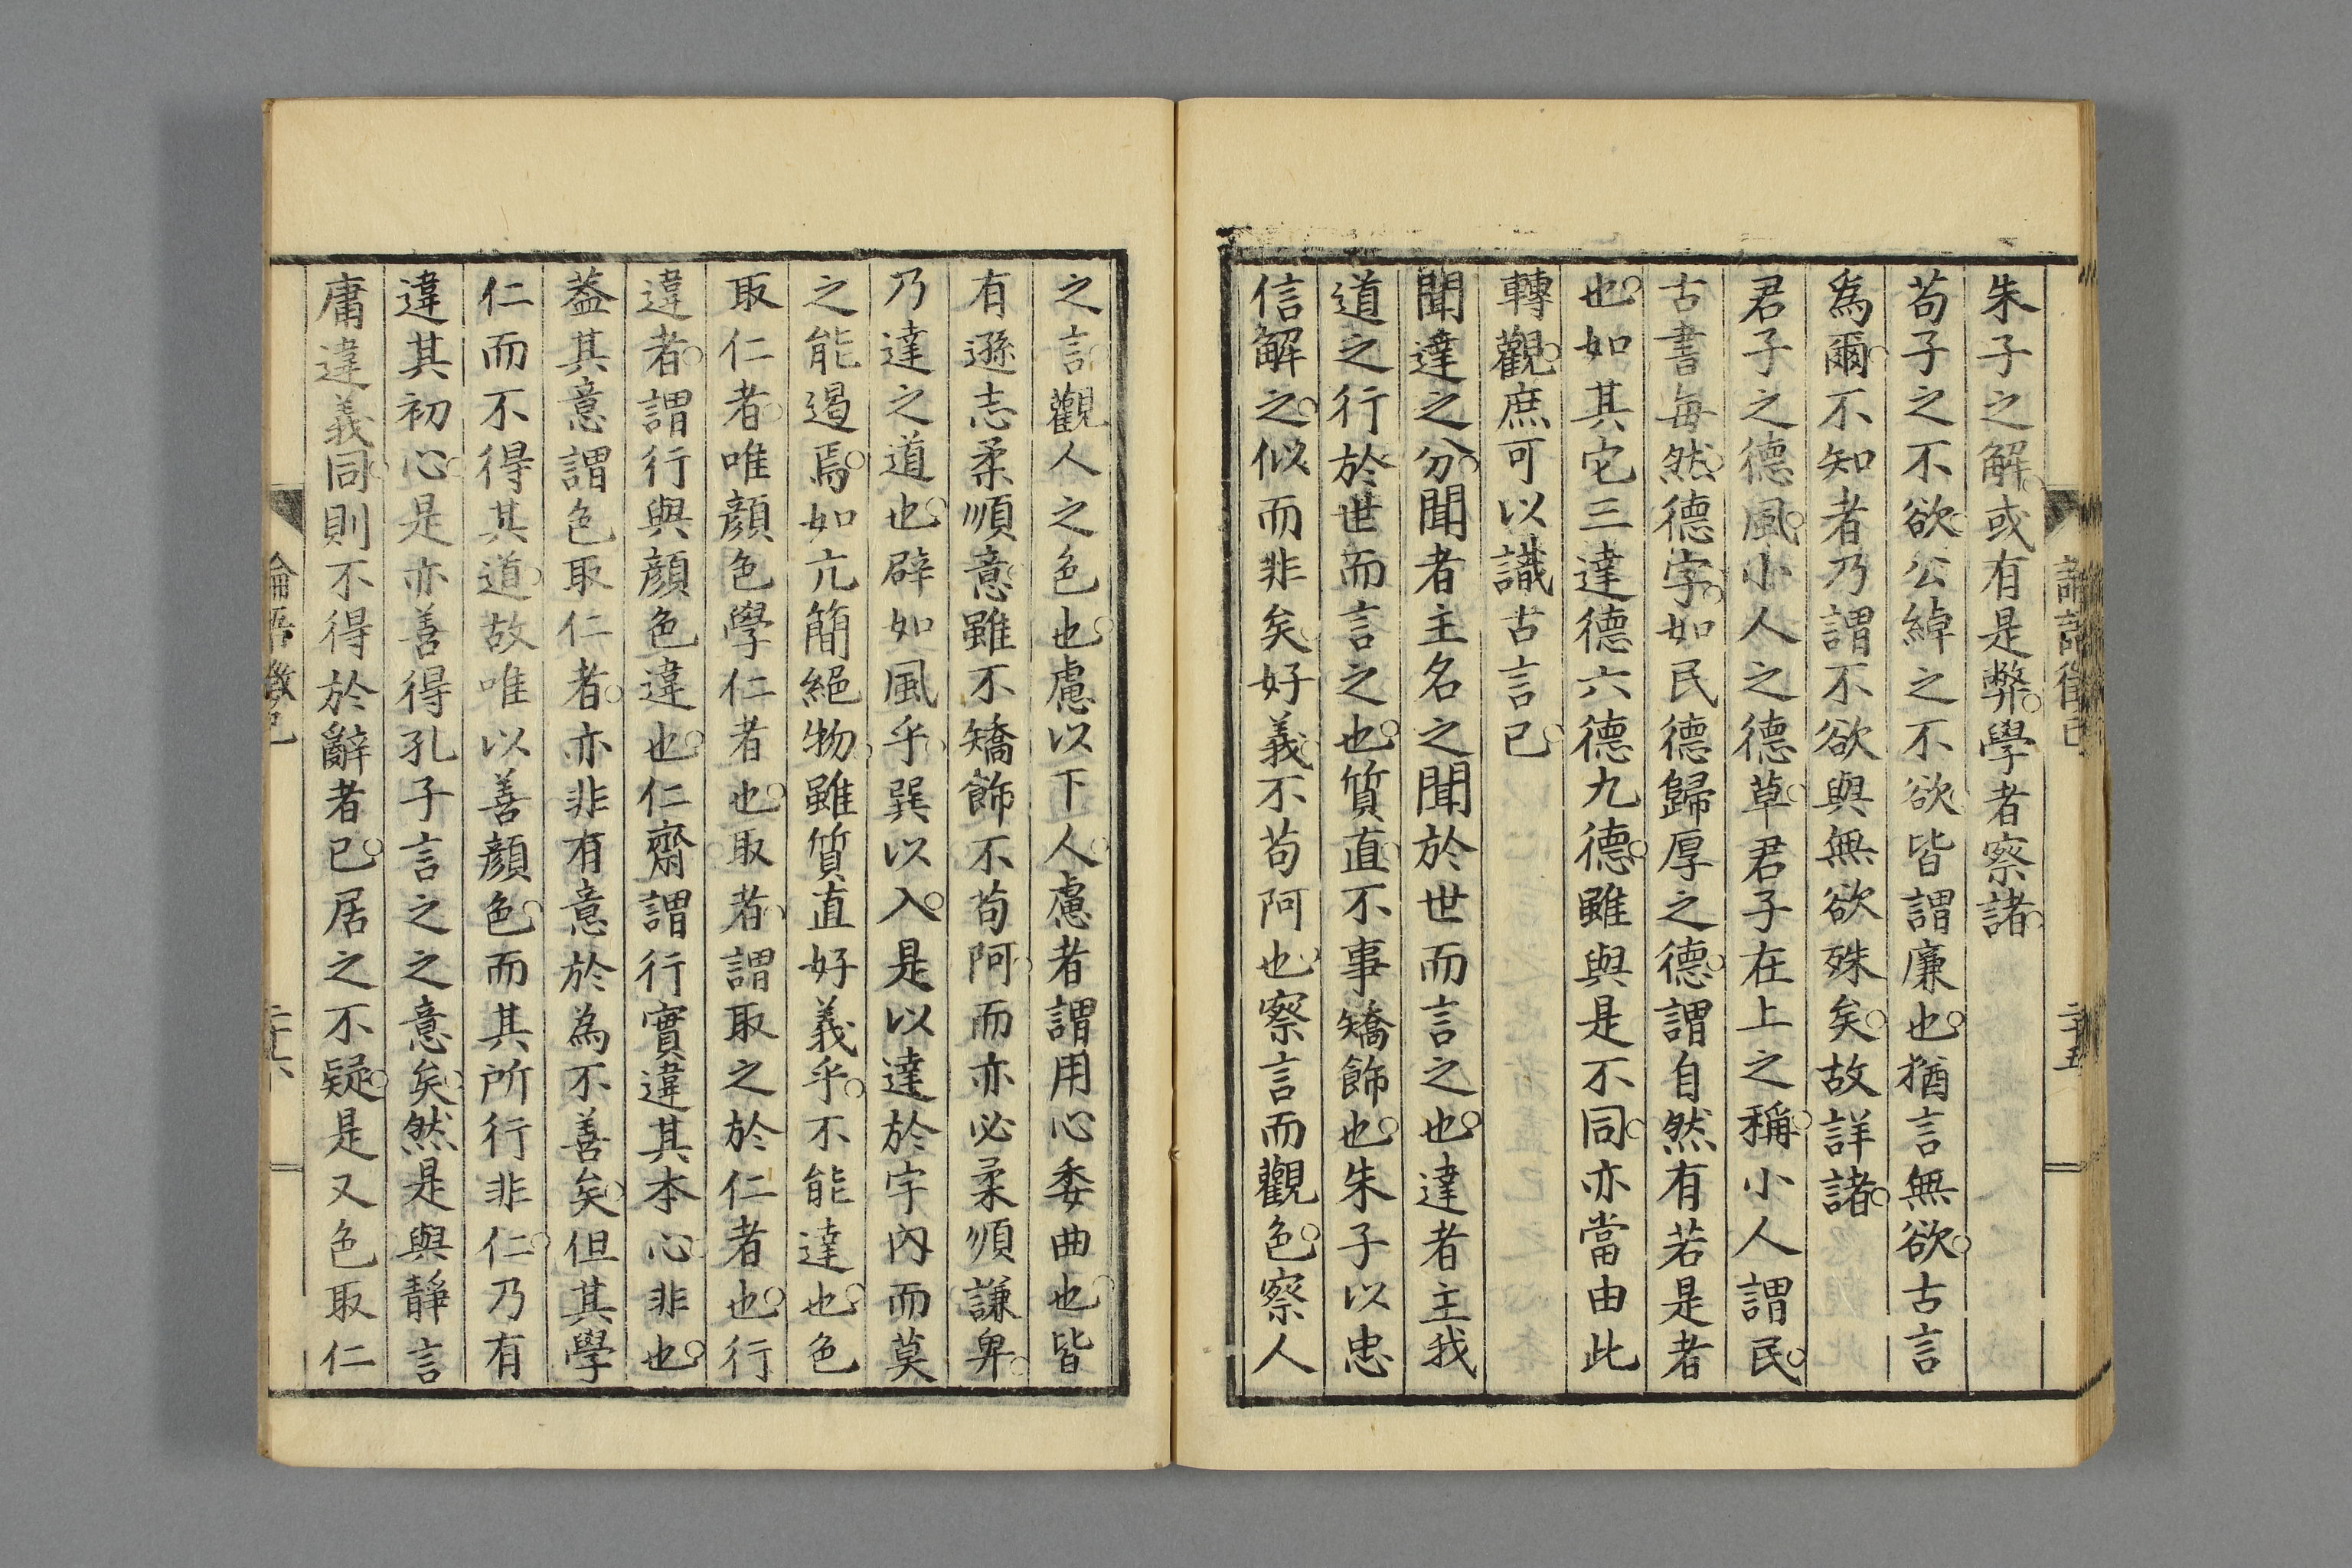 朱子之解或有是弊學者察諸
苟子之不欲公綽之不欲皆謂廉也猶言無欲古言
爲爾不知者乃謂不欲與無欲殊矣故詳諸
君子之德風小人之德草君子在上之稱小人謂民
古書每然德字如民德歸厚之德謂自然有若是者
也如其它三達德六德九德雖與是不同亦當由此
轉觀庶可以識古言已
聞達之分聞者主名之聞於世而言之也達者主我
道之行於世而言之也質直不事矯飾也朱子以忠
信解之似而非矣好義不苟阿也察言而觀色察人
之言觀人之色也慮以下人慮者謂用心委曲也皆
有遜志柔順意雖不矯飾不苟阿而亦必柔順謙卑
乃達之道也辟如風乎巽以入是以達於宇內而莫
之能遏焉如亢簡絕物雖質直好義乎不能達也色
取仁者唯顏色學仁者也取者謂取之於仁者也行
違者謂行與顏色違也仁齋謂行實違其本心非也
蓋其意謂色取仁者亦非有意於為不善矣但其學
仁而不得其道故唯以善顏色而其所行非仁乃有
違其初心是亦善得孔子言之之意矣然是與靜言
庸違義同則不得於辭者已居之不疑是又色取仁
論語徵己
二十六